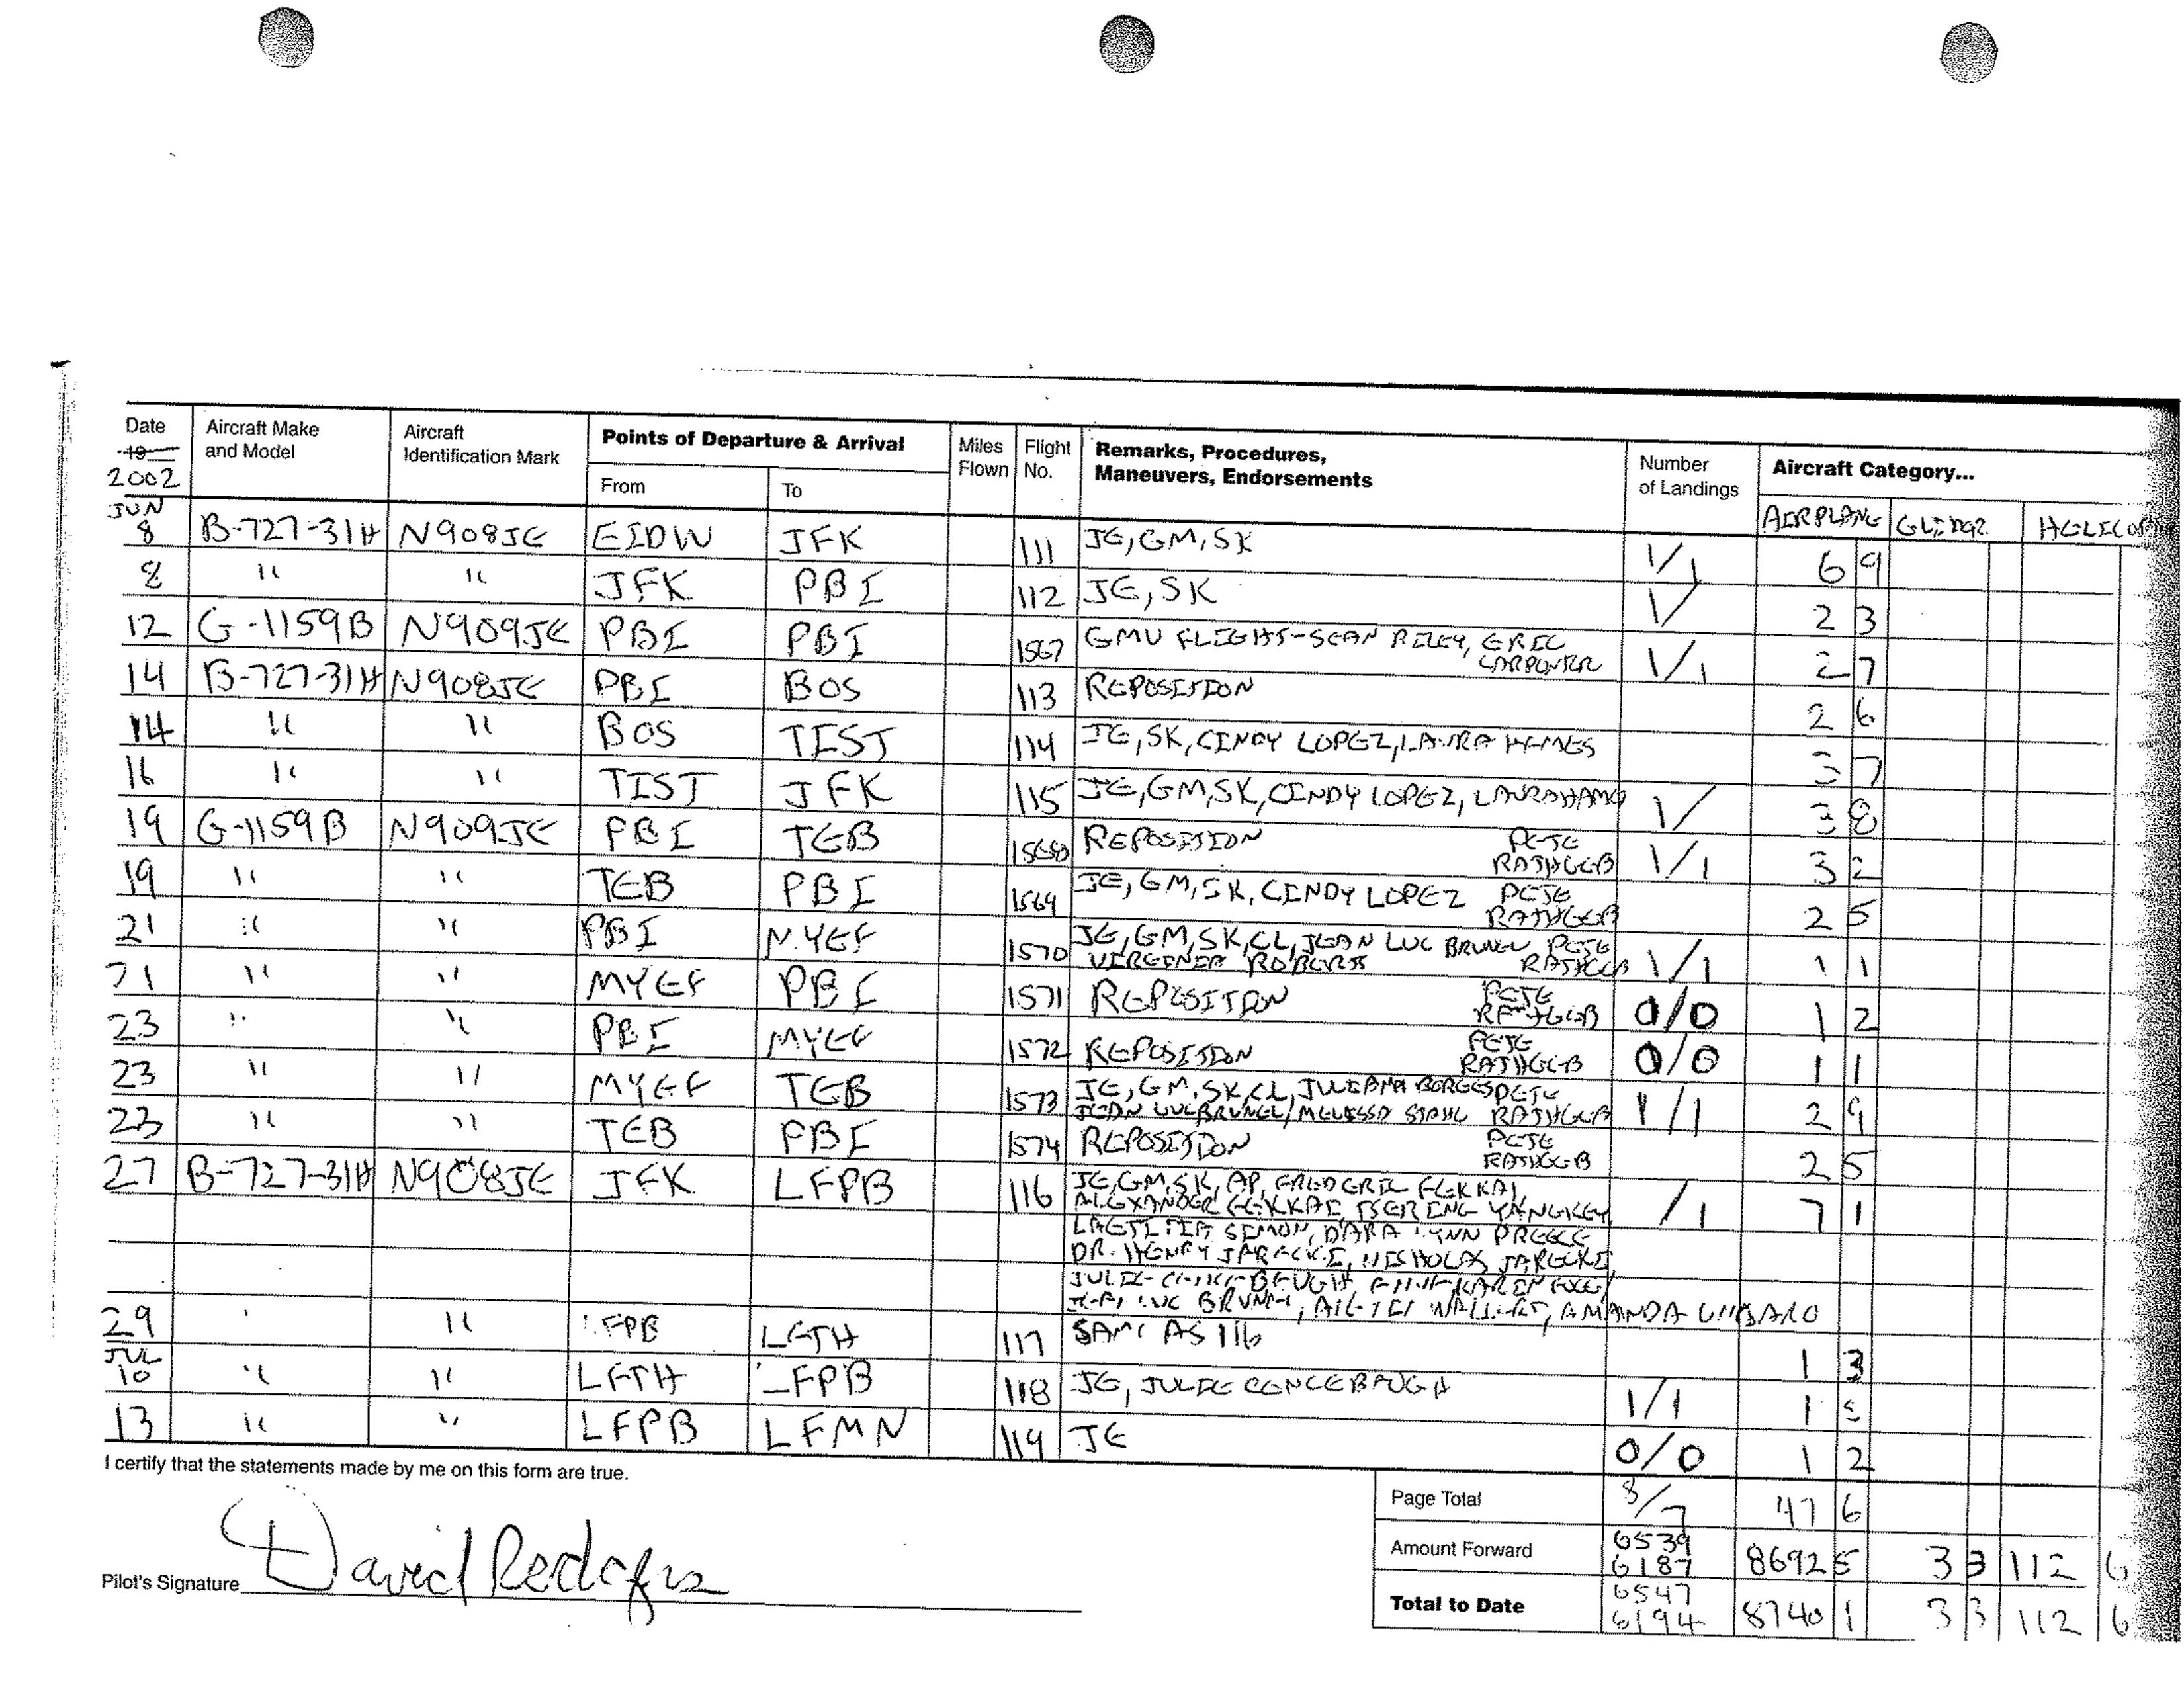 Date Aircraft Make and Model Aircraft Identification Mark Points of Departure & Arrival Miles Flown Flight No. Remarks, Procedures, Maneuvers, Endorsements Number of Landings Aircraft Category...
19
2002 From To AIRPLANE GLIDER
JUN
8 B-727-31H N908JE EIDW JFK 111 JE, GM, SK 1/1 6 9
8 " " JFK PBI 112 JE, SK 1/ 2 3
12 G-1159B N909JE PBI PBI 1567 GMU FLIGHT-SEAN RILEY, ERIC 1/1 2 7
14 B-727-31H N908JE PBI BOS 113 REPOSITION 2 6
14 " " BOS TIST 114 JE, SK, CINDY LOPEZ, LAURA 3 7
16 " " TIST JFK 115 JE, GM, SK, CINDY LOPEZ, LAURA 1/ 3 8
19 G-1159B N909JE PBI TEB 1568 REPOSITION PETE RATHGEB 1/1 3 2
19 " " TEB PBI 1569 JE, GM, SK, CINDY LOPEZ PETE RATHGEB 2 5
21 " " PBI MYEF 1570 JE, GM, SK, CL, JEAN LUC BRUNEL PETE
VIRGINIA ROBERTS RATHGEB 1/1 1 1
21 " " MYEF PBI 1571 REPOSITION PETE RATHGEB 0/0 1 2
23 " " PBI MYEF 1572 REPOSITION PETE RATHGEB 0/0 1 1
23 " " MYEF TEB 1573 JE, GM, SK, CL, JULIANA BORGES PETE
JEAN LUC BRUNEL, MELISSA STAHL RATHGEB 1/1 2 9
23 " " TEB PBI 1574 REPOSITION PETE RATHGEB 2 5
27 B-727-31H N908JE JFK LFPB 116 JE, GM, SK, AP, FREDERIC FEKKAI, /1 7 1
ALEXANDER FEKKAI, TSERING YANGKEY
SIMON, DARA LYNN PREECE
DR. HENRY JARECKI, NICHOLAS JARECKI,
JULIE
LUC BRUNEL, AMANDA
29 " LFPB LFTH 117 SAME AS 116 1 3
JUL
10 " " LFTH LFPB 118 JE, JULIE 1/1 1
13 " " LFPB LFMN 119 JE 0/0 1 2
I certify that the statements made by me on this form are true.
Page Total 8/7 47 6
Amount Forward 6539 6187 8692 5 3 3 112 6
Total to Date 6547 6194 8740 1 3 3 112 6
Pilot's Signature David Rodgers